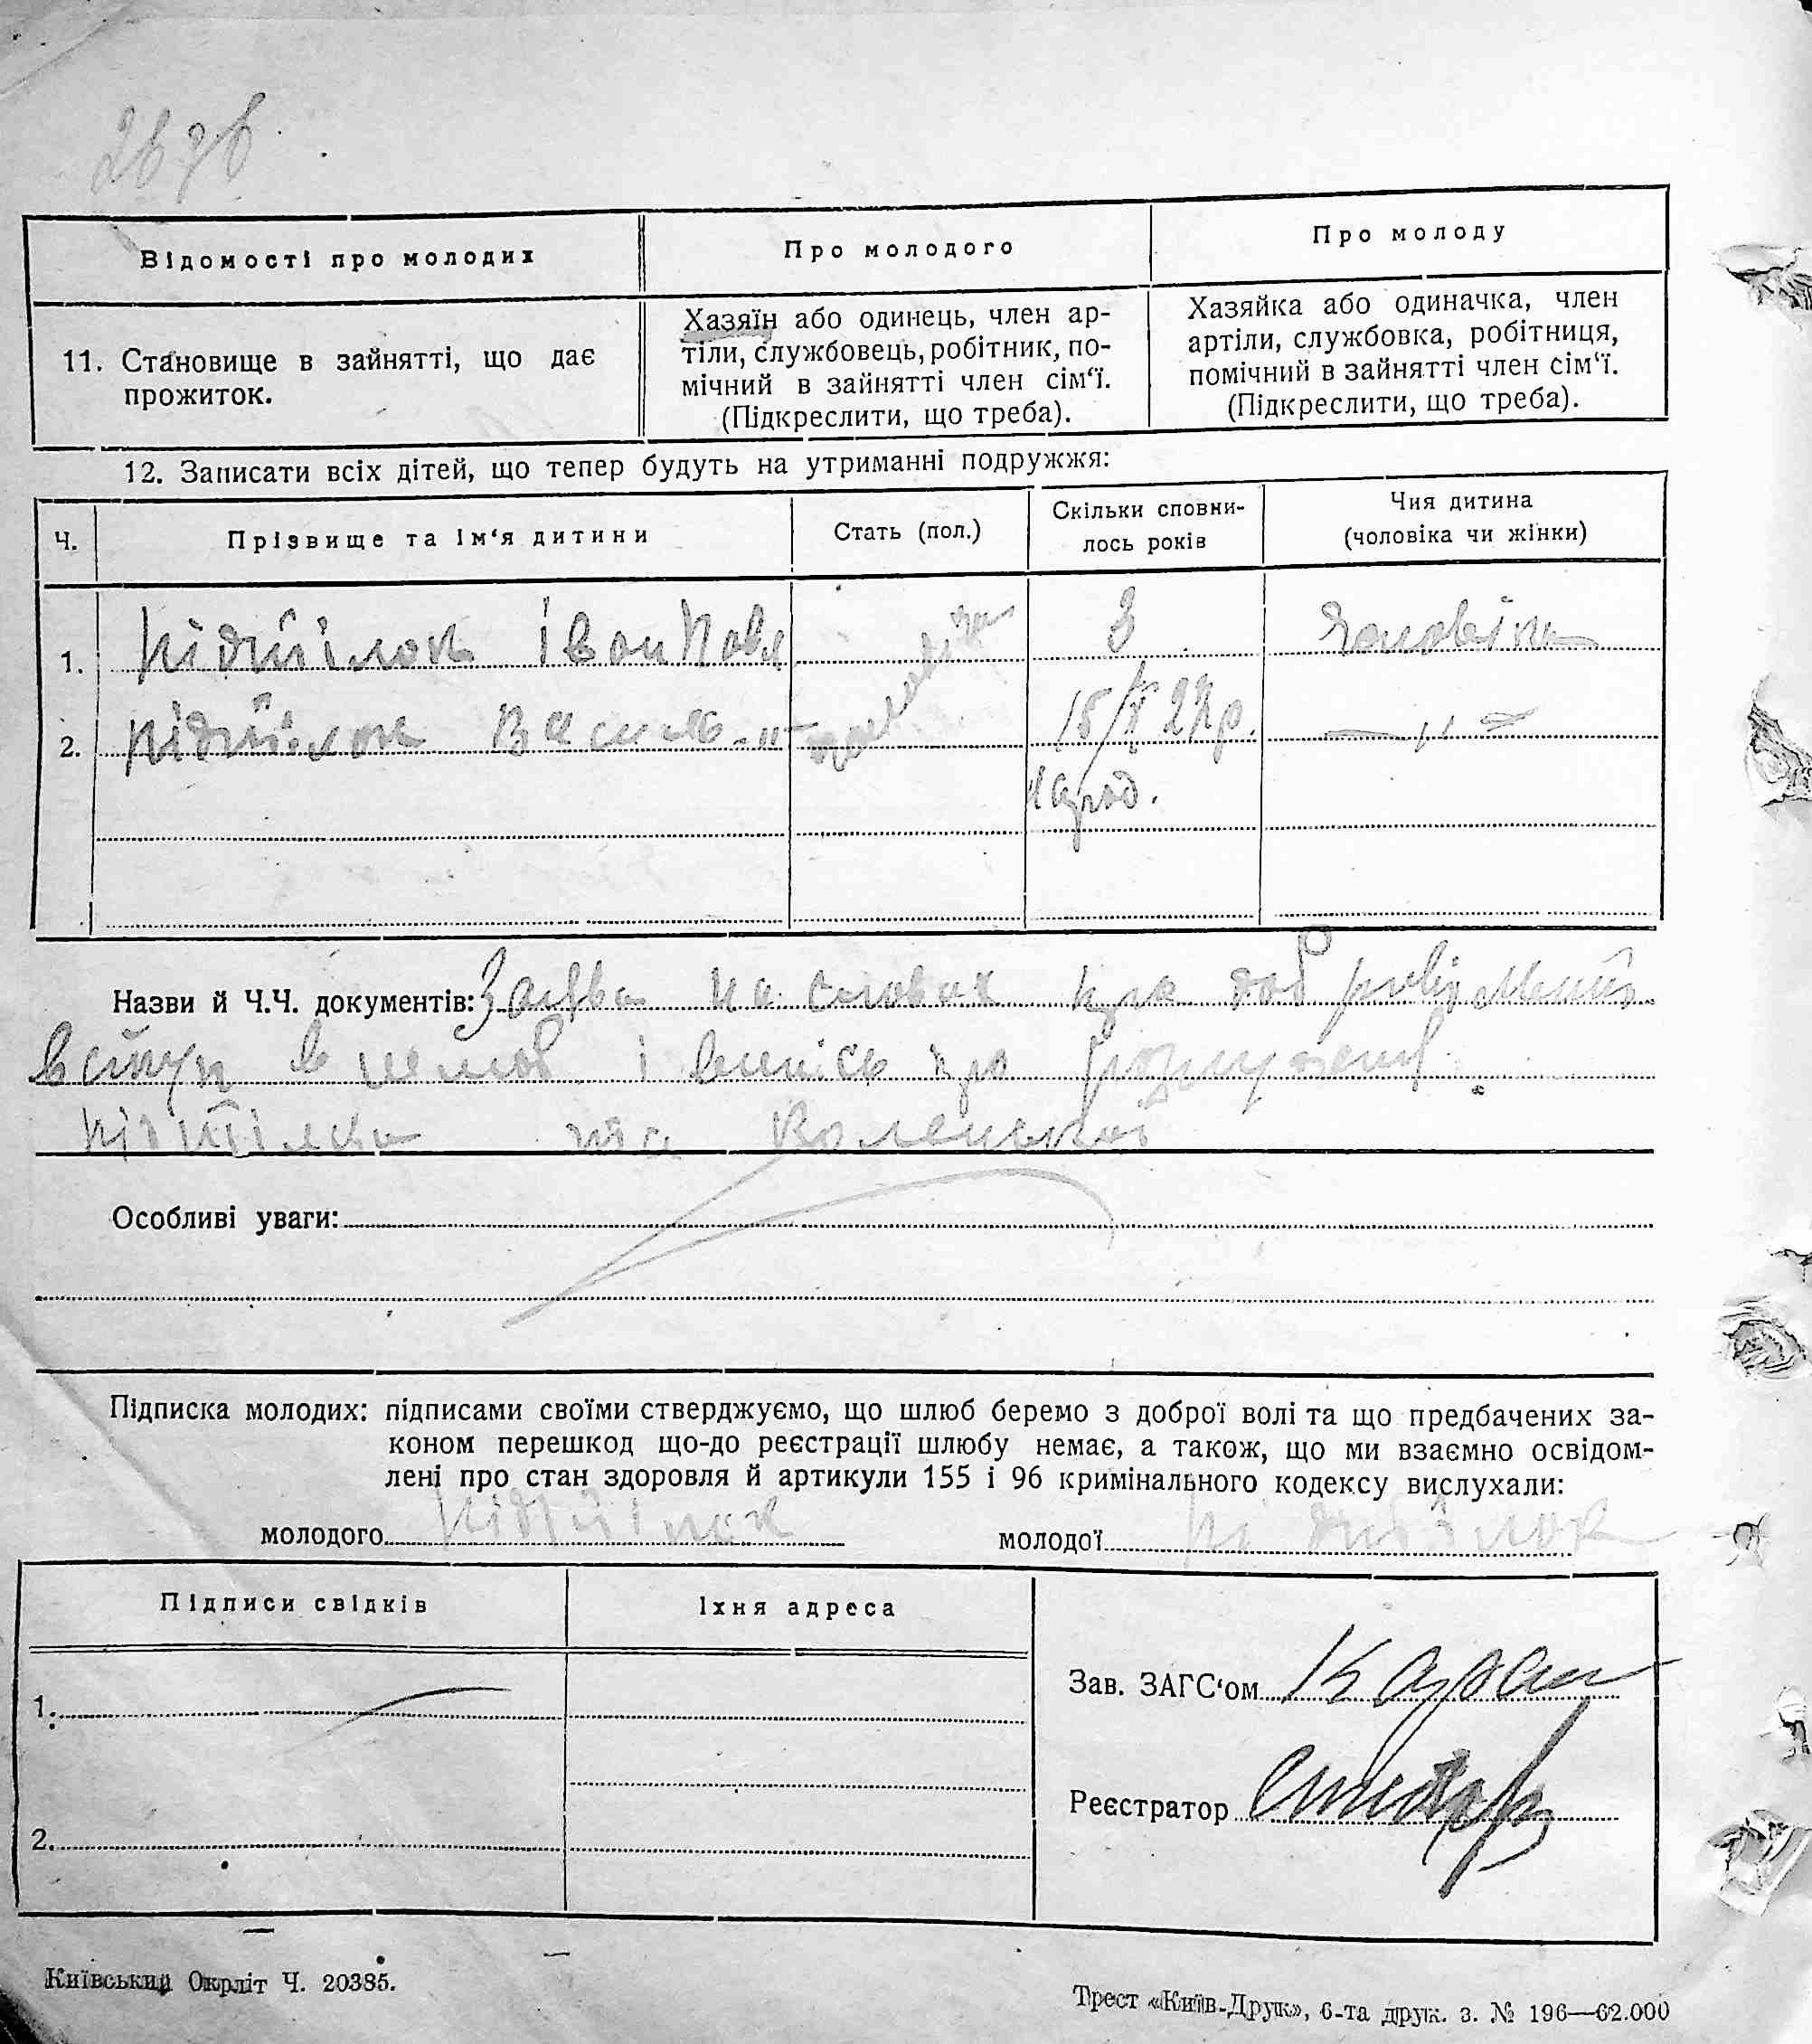 Відомості про молодих
Про молодого
Про молоду
11. Становище в зайнятті, що дає
прожиток.
Хазяїн або одинець, член ар-
тіли, службовець, робітник, по-
мічний в зайнятті член сім‘ї.
(Підкреслити, що треба).
Хазяйка або одиначка, член
артіли, службовка, робітниця,
помічний в зайнятті член сім‘ї.
(Підкреслити, що треба).
12. Записати всіх дітей, що тепер будуть на утриманні подружжя:
Ч.
Прізвище та ім‘я дитини
Стать (пол.)
Скільки сповни-
лось років
Чия дитина
(чоловіка чи жінки)
1. Підпілок Іван Павл
3
Чоловіка
2. Підпілок Василь -"-
15/X 27р.
—"—
народ.
Назви й Ч.Ч. документів: Заява на словах про
вступ в шлюб і випись про
Підпілка та
Особливі уваги:
Підписка молодих: підписами своїми стверджуємо, що шлюб беремо з доброї волі та що предбачених за-
коном перешкод що-до реєстрації шлюбу немає, а також, що ми взаємно освідом-
лені про стан здоровля й артикули 155 і 96 кримінального кодексу вислухали:
молодого Підпілок молодої Підпілок
Підписи свідків
Їхня адреса
1.
2.
Зав. ЗАГС‘ом
Реєстратор
Київський Окрліт Ч. 20385.
Трест «Київ-Друк», 6-та друк. з. № 196—62.000